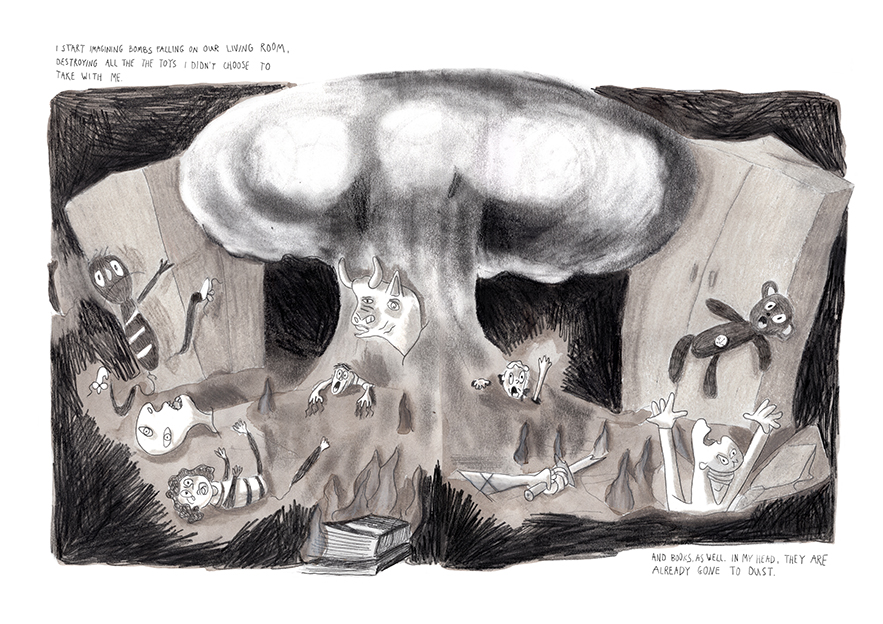 I START IMAGINING BOMBS FALLING ON OUR LIVING ROOM,
DESTROYING ALL THE THE TOYS I DIDN'T CHOOSE TO
TAKE WITH ME.
AND BOOKS. AS WELL. IN MY HEAD, THEY ARE
ALREADY GONE TO DUST.